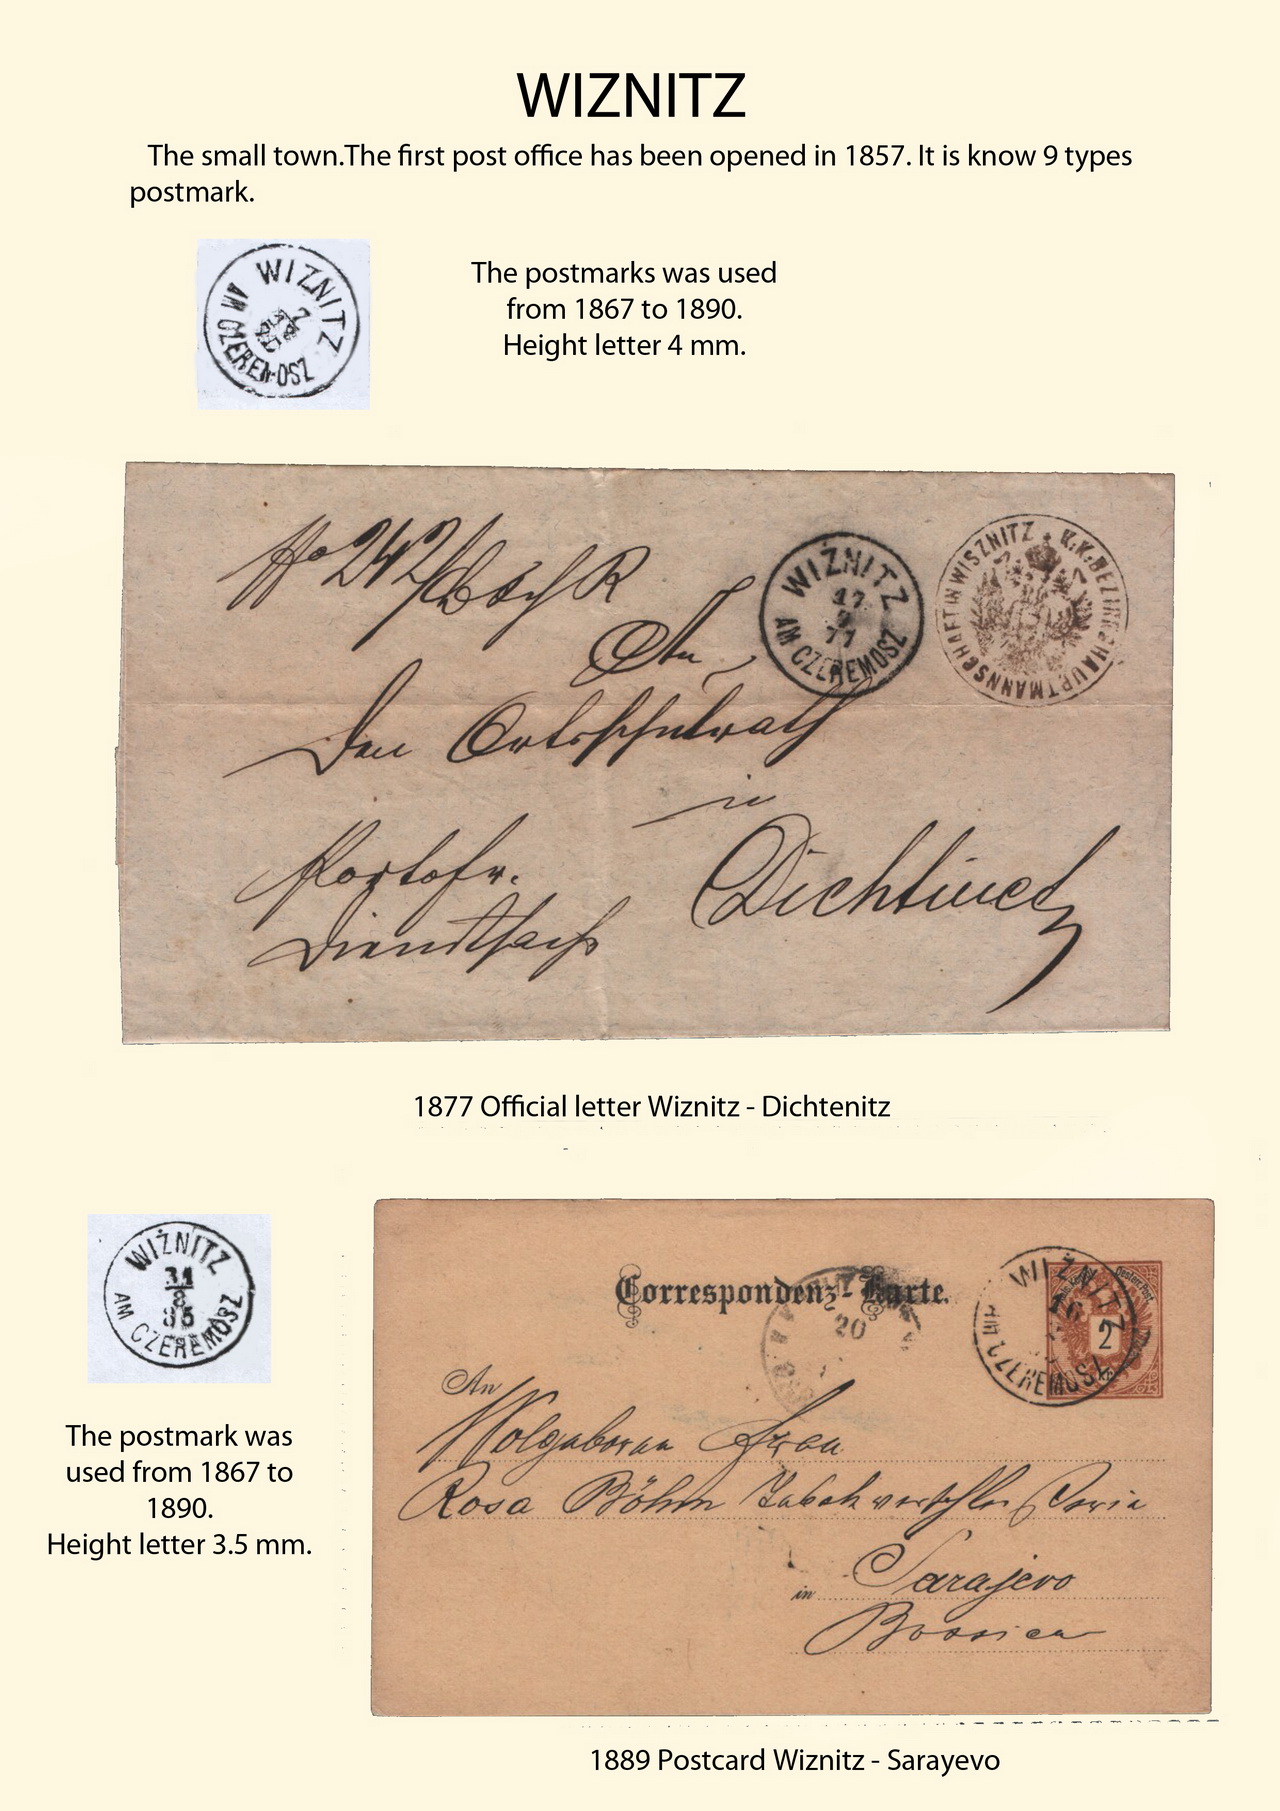 WIZNITZ
The small town.The first post office has been opened in 1857. It is know 9 types
postmark.
WIZNITZ
AM CZEREMOSZ
The postmarks was used
from 1867 to 1890.
Height letter 4 mm.
No 242
WIŻNITZ
17
77
AM CZEREMOSZ
K.K.BEZIRKSHAUPTMANNSCHAFT IN WISZNITZ
An
Den Ortsschulrath
in
Portofr.
Dichtinetz
Dienstsache
1877 Official letter Wiznitz - Dichtenitz
WIŻNITZ
31
8
85
AM CZEREMOSZ
The postmark was
used from 1867 to
1890.
Height letter 3.5 mm.
Correspondenz-Karte.
20
WIŻNITZ
16
AM CZEREMOSZ
2
An
Wolgeboren Frau
Rosa Böhm
in Sarajevo
Bosnien
1889 Postcard Wiznitz - Sarayevo